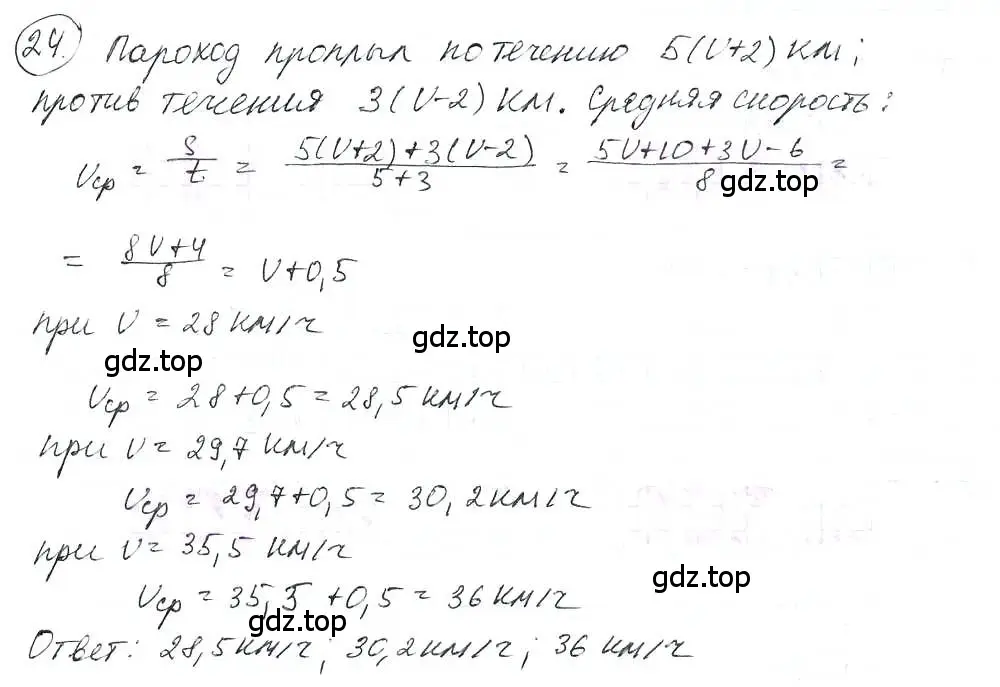 24. Пароход проплыл по течению 5(V+2) км;
против течения 3(V-2) км. Средняя скорость:
Vср = S/t = (5(V+2)+3(V-2))/(5+3) = (5V+10+3V-6)/8 =
gdz.top
= (8V+4)/8 = V+0,5
при V = 28 км/ч
gdz.top
gdz.top
Vср = 28+0,5 = 28,5 км/ч
при V = 29,7 км/ч
Vср = 29,7+0,5 = 30,2 км/ч
при V = 35,5 км/ч
gdz.top
Vср = 35,5 +0,5 = 36 км/ч
gdz.top
Ответ: 28,5 км/ч; 30,2 км/ч; 36 км/ч